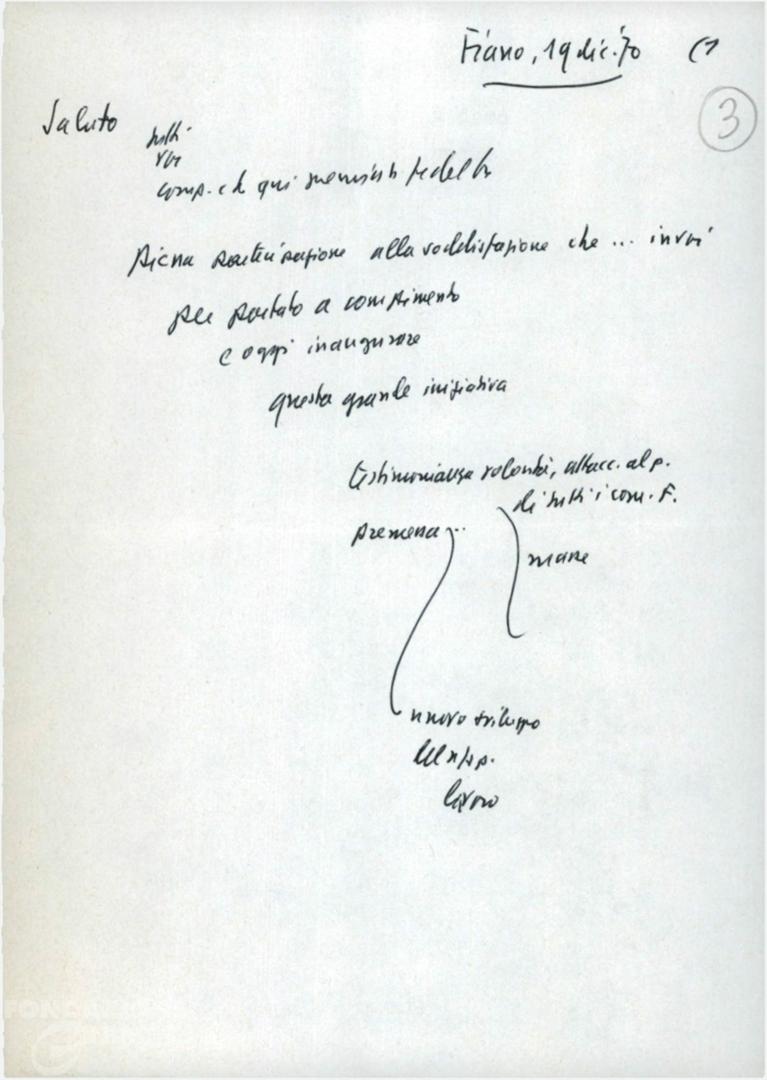 Fiano, 19 dic. '70 (1
3
Saluto
tutti
voi
comp. ch qui
piena partecipazione alla soddisfazione che ... in voi
per portato a compimento
e oggi inaugurare
questa grande iniziativa
testimonianza volontà, attacc. al p.
di tutti i com. F.
premessa ...
nuovo sviluppo
lavoro
FONDAZIONE